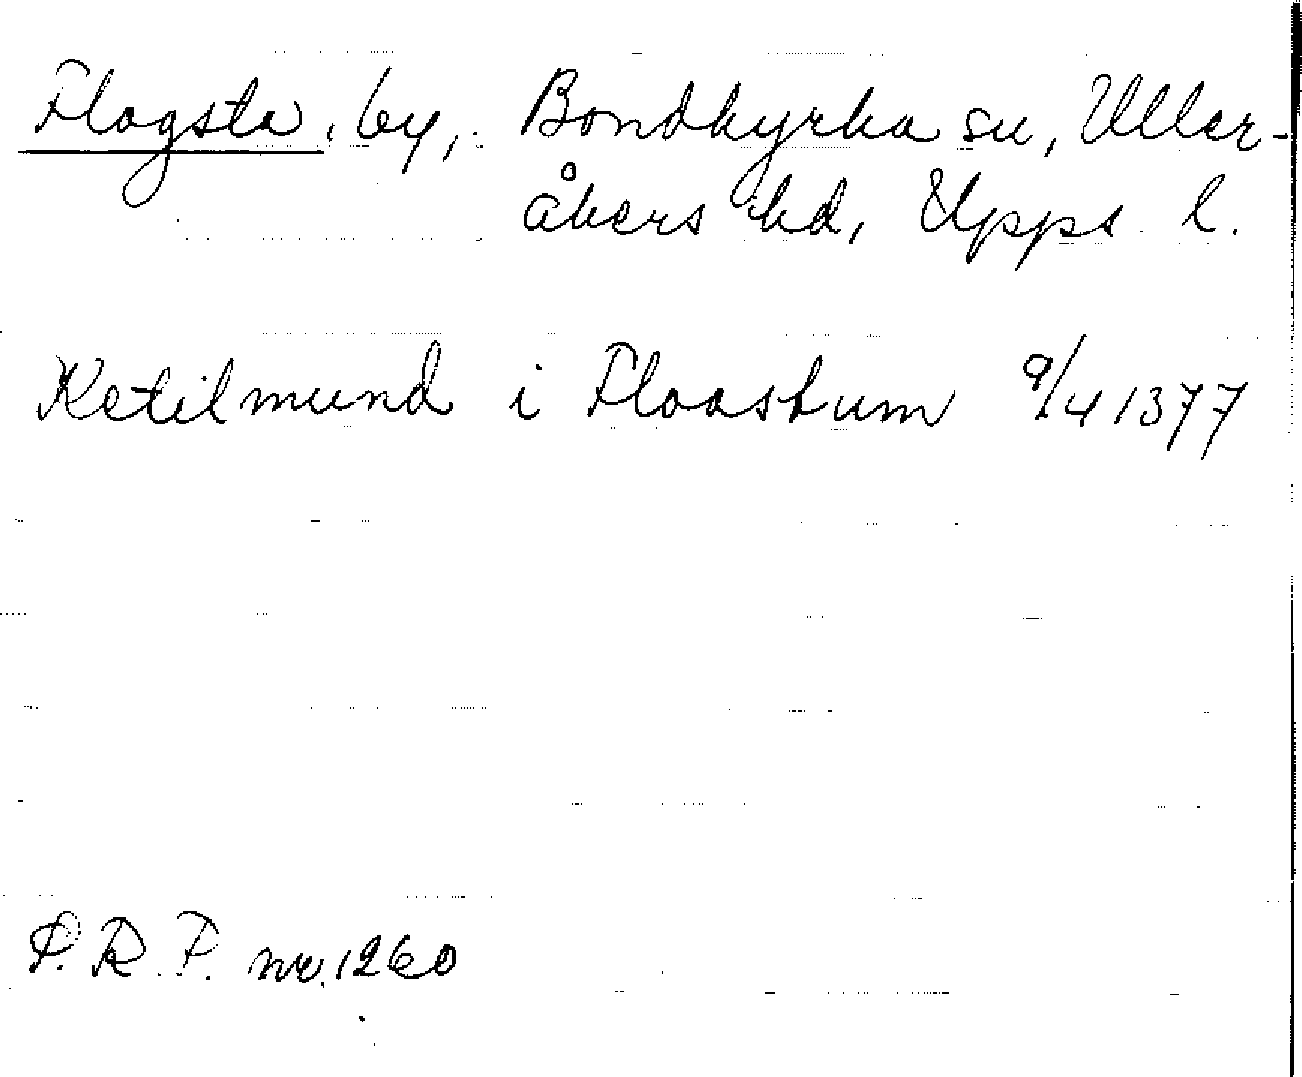 Flogsta, by, Bondkyrka sn, Uller-
åkers hd, Upps. l.
Ketilmund i Floastum 9/4 1377
P. R. P. nr. 1260